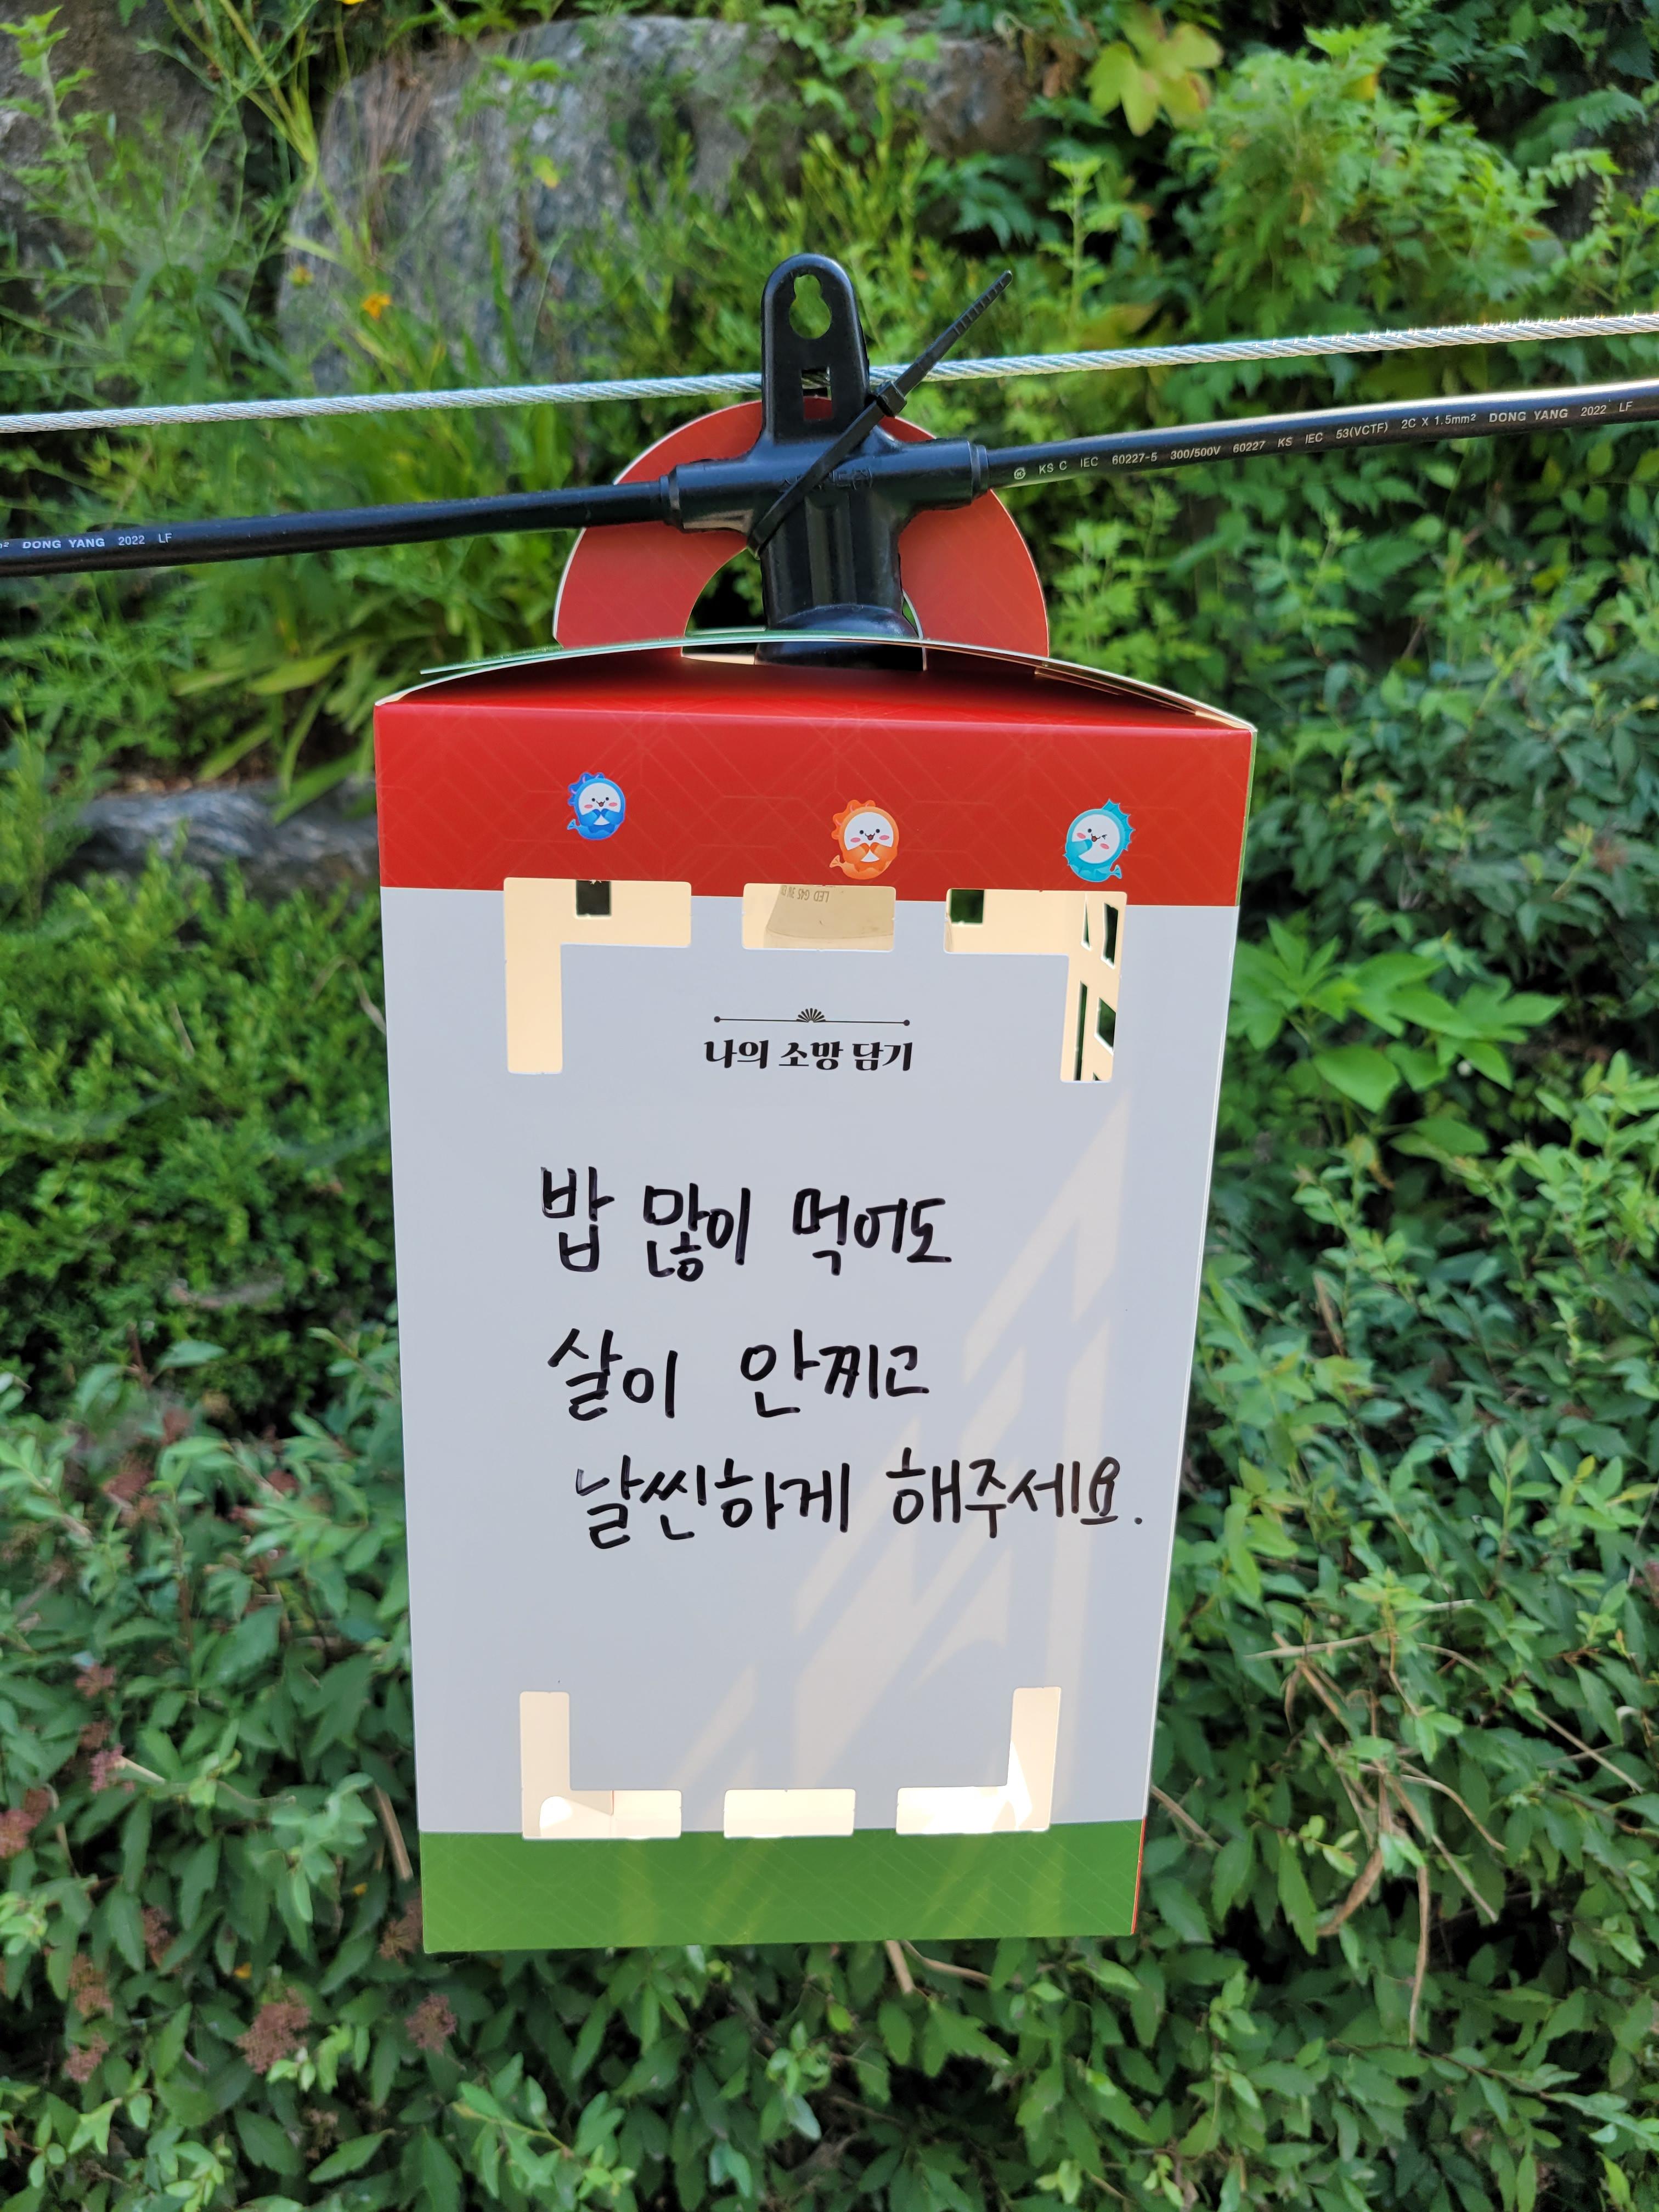 KS C IEC 60227-5 300/500V 60227 KS IEC 53(VCTF) 2C X 1.5mm² DONG YANG 2022 LF
DONG YANG 2022 LF
LED G45
나의 소망 담기
밥 많이 먹어도
살이 안찌고
날씬하게 해주세요.